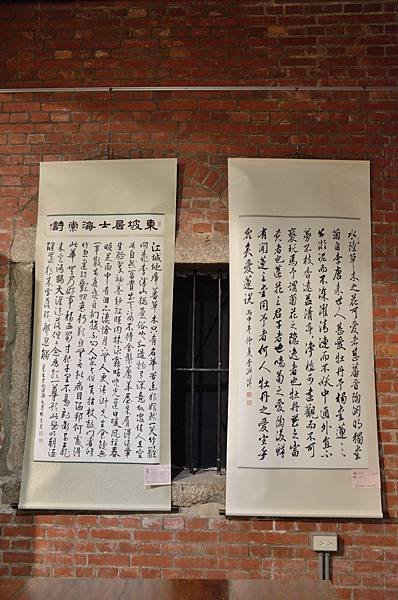 東坡居士海棠詩
江城地瘴蕃草木只有名花苦幽獨嫣然一笑竹籬
間桃李漫山總粗俗也知造物有深意故遣佳人在空
谷自然富貴出天姿不待金盤薦華屋朱唇得酒暈
生臉翠袖卷紗紅映肉林深霧暗曉光遲日暖風輕春
睡足雨中有淚亦悽愴月下無人更清淑先生食飽無
一事散步逍遙自捫腹不問人家與僧舍拄杖敲門看修
竹忽逢絕艷照衰朽歎息無言揩病目陋邦何處得
此花無乃好事移西蜀寸根千里不易到銜子飛
來定鴻鵠天涯流落俱可念為飲一樽歌此曲明朝酒
醒還獨來雪落紛紛那忍觸
水陸草木之花可愛者甚蕃晉陶淵明獨愛
菊自李唐來世人甚愛牡丹予獨愛蓮之
出淤泥而不染濯清漣而不妖中通外直不
蔓不枝香遠益清亭亭淨植可遠觀而不可
褻玩焉予謂菊花之隱逸者也牡丹花之富
貴者也蓮花之君子者也噫菊之愛陶後鮮
有聞蓮之愛同予者何人牡丹之愛宜乎
眾矣愛蓮說 丙申年仲夏